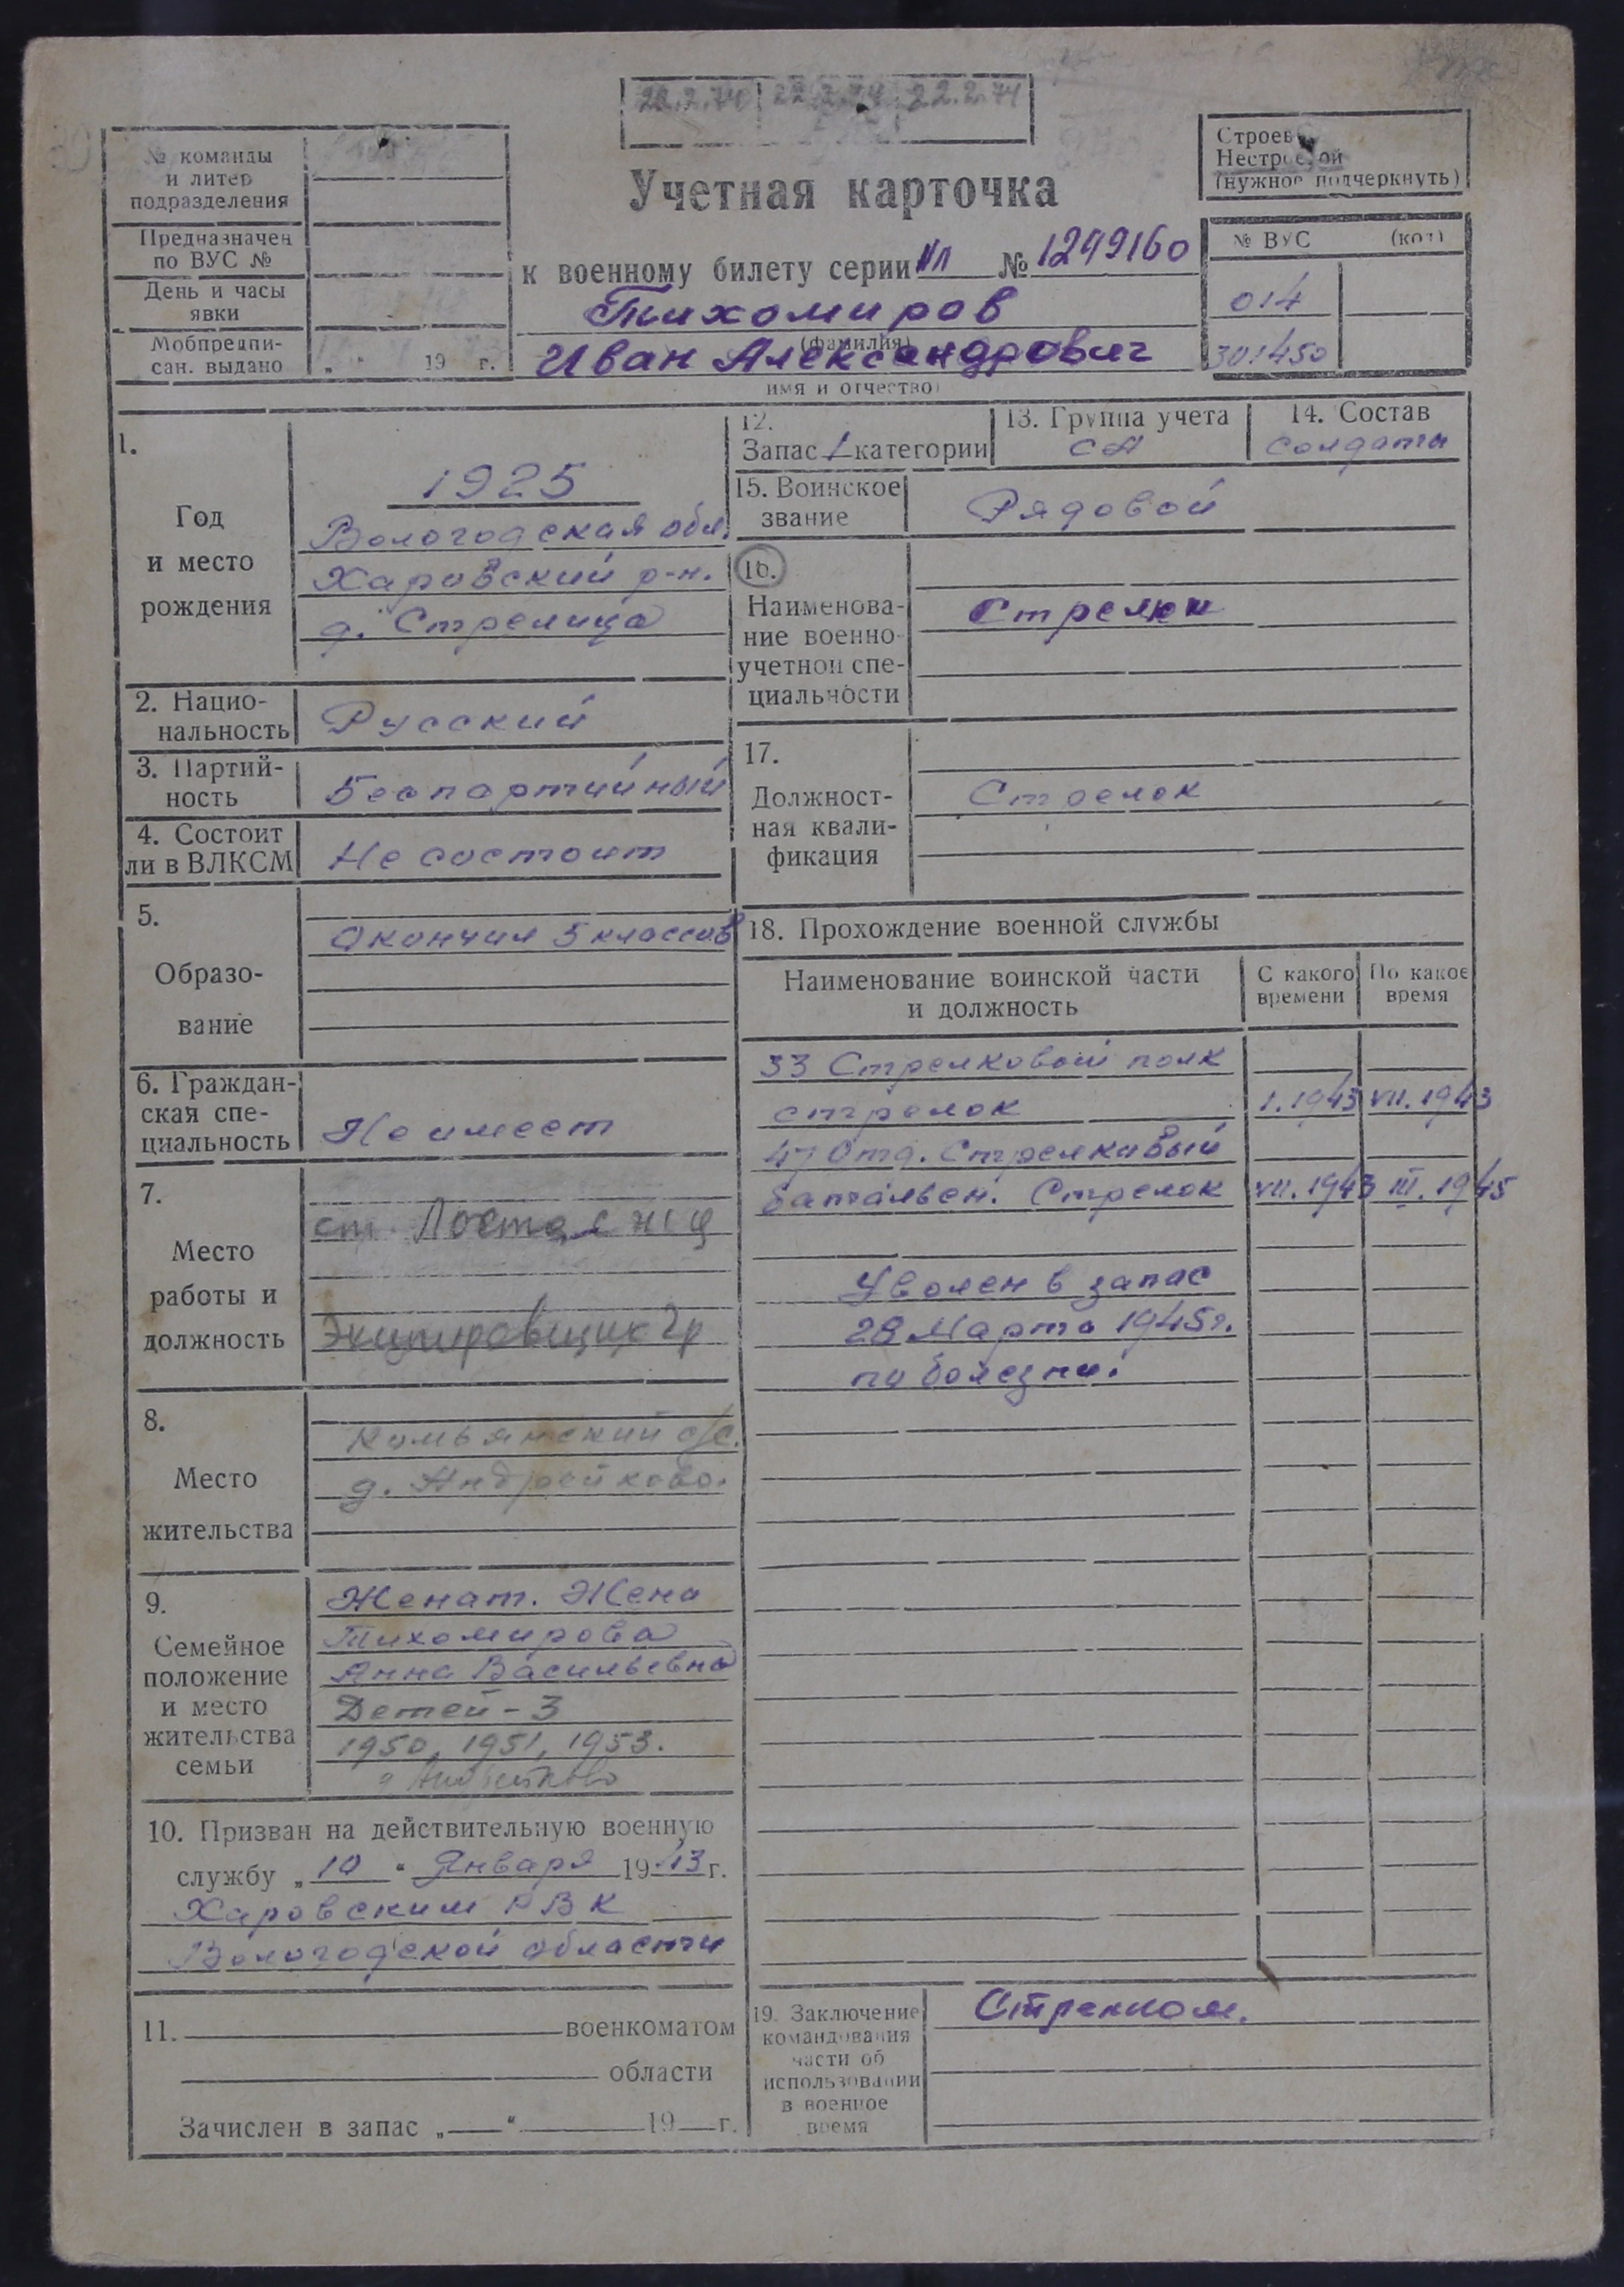 22.2.74
№ команды
и литер
подразделения
Предназначен
по ВУС №
День и часы
явки
Мобпредпи-
сан. выдано „ “ 19 г.
Учетная карточка
к военному билету серии № 1249160
Тихомиров
(фамилия)
Иван Александрович
имя и отчество)
Строевой
Нестроевой
(нужное подчеркнуть)
№ ВУС (кот)
014
301450
1.
Год
и место
рождения
1925
Вологодская обл.
Харовский р-н.
д. Стрелица
2. Нацио-
нальность
Русский
3. Партий-
ность
Беспартийный
4. Состоит
ли в ВЛКСМ
Не состоит
5.
Образо-
вание
Окончил 5 классов
6. Граждан-
ская спе-
циальность
Не имеет
7.
Место
работы и
должность
ст. Лоста
Экипировщик 2р
8.
Место
жительства
с/с.
д. Андрейково.
9.
Семейное
положение
и место
жительства
семьи
Женат. Жена
Тихомирова
Анна Васильевна
Детей - 3
1950, 1951, 1953.
д Андрейково
10. Призван на действительную военную
службу „10“ Января 1943 г.
Харовским РВК
Вологодской области
11. военкоматом
области
Зачислен в запас „ “ 19 г.
12.
Запас 1 категории
13. Группа учета
СА
14. Состав
солдаты
15. Воинское
звание
Рядовой
16.
Наименова-
ние военно-
учетной спе-
циальности
Стрелки
17.
Должност-
ная квали-
фикация
Стрелок
18. Прохождение военной службы
Наименование воинской части
и должность
С какого
времени
По какое
время
33 Стрелковый полк
стрелок I.1943 VII.1943
47 Отд. Стрелковый
батальен. Стрелок VII.1943 III.1945
Уволен в запас
28 Марта 1945г.
по болезни.
19. Заключение
командования
части об
использовании
в военное
время
Стрелком.